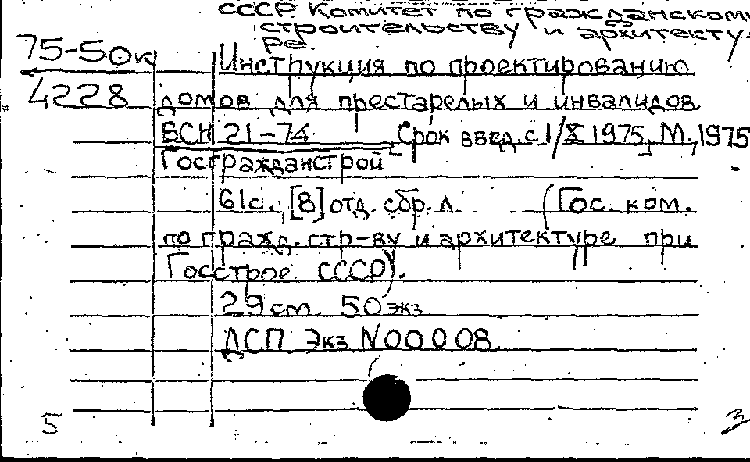 СССР. Комитет по гражданскому
строительству и архитекту-
ре.
75-50к Инструкция по проектированию
4228 домов для престарелых и инвалидов
ВСН 21-74 Срок введ. с 1/X 1975, М., 1975
Госгражданстрой
61с., [8] отд. сбр. л. (Гос. ком.
по гражд. стр-ву и архитектуре при
Госстрое СССР).
29 см. 50 экз
ДСП Экз N00008
5 3